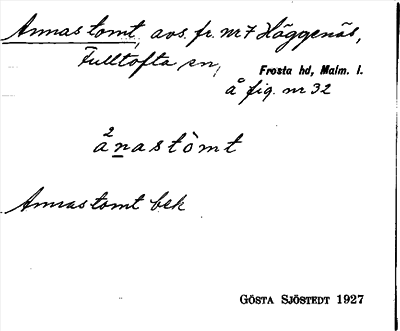 Annas tomt, avs. fr. nr 7 Häggenäs,
Fulltofta sn,
Frosta hd, Malm. l.
å fig. nr 32
2
ànastòmt
Annastomt bek
GÖSTA SJÖSTEDT 1927